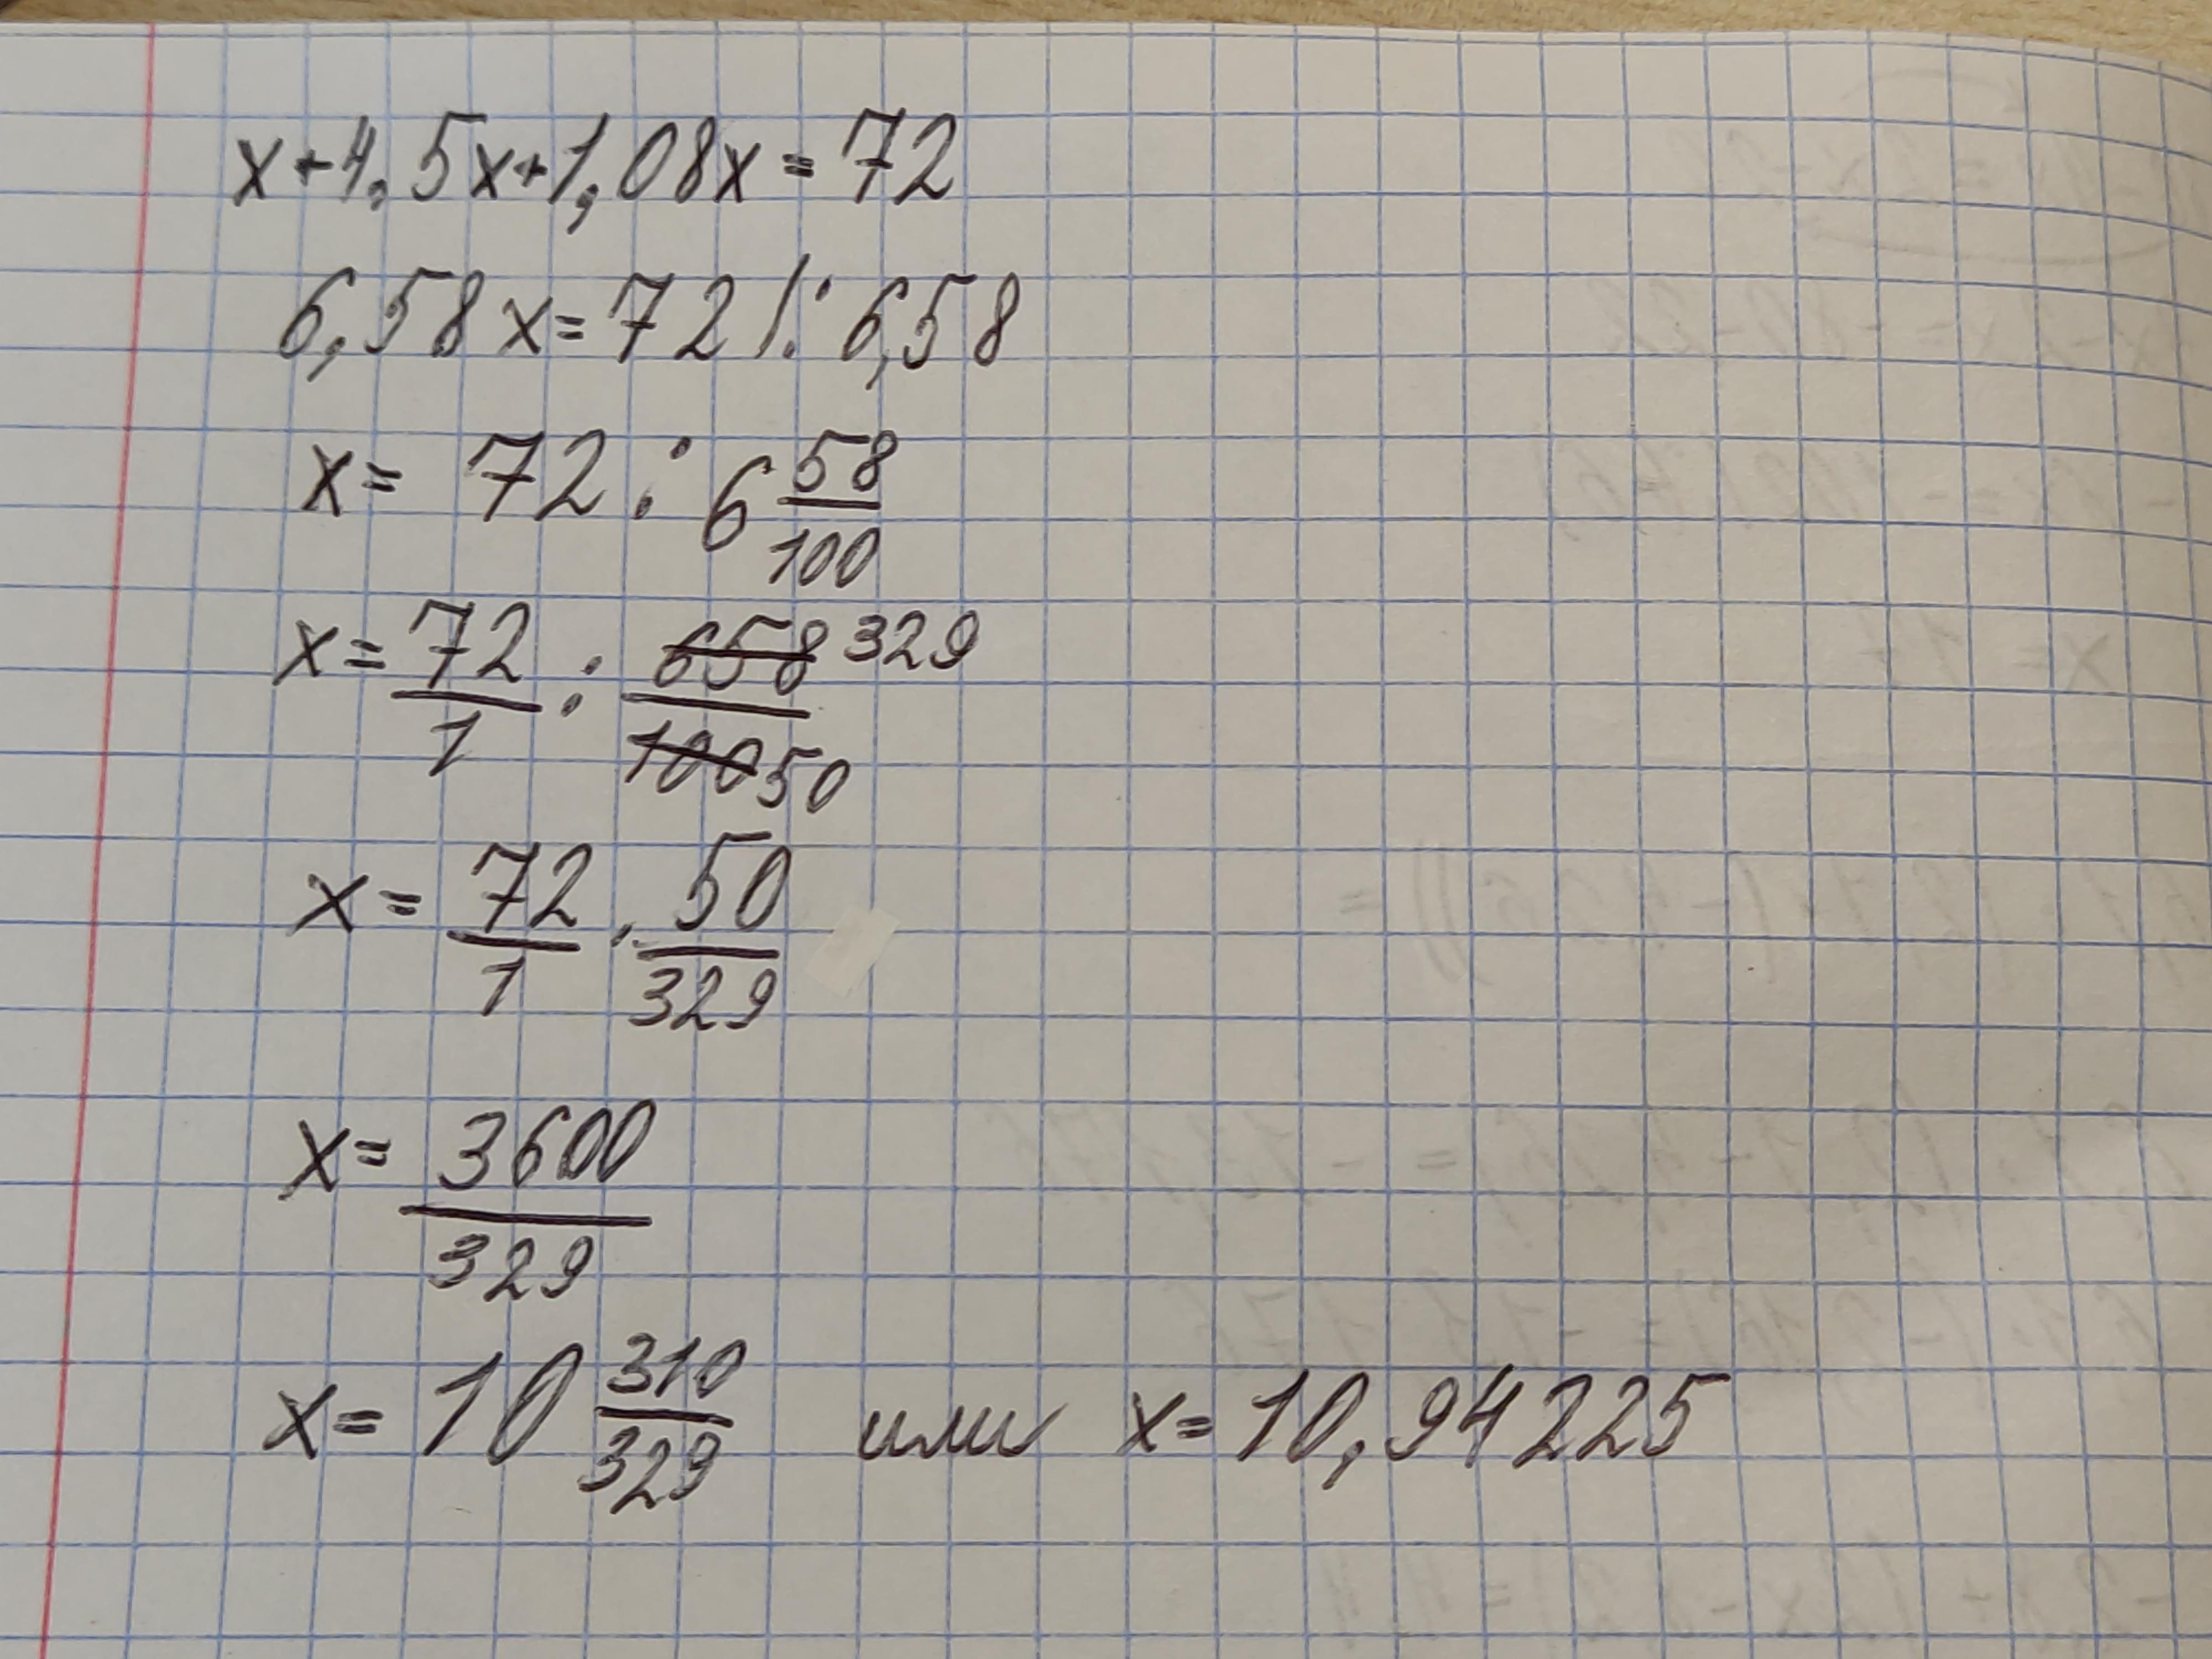 x+4,5x+1,08x=72
6,58x=72 |:6,58
x= 72 : 6 58/100
x= 72/1 : 658/100 329/50
x= 72/1 · 50/329
x= 3600/329
x= 10 310/329 или x=10,94225